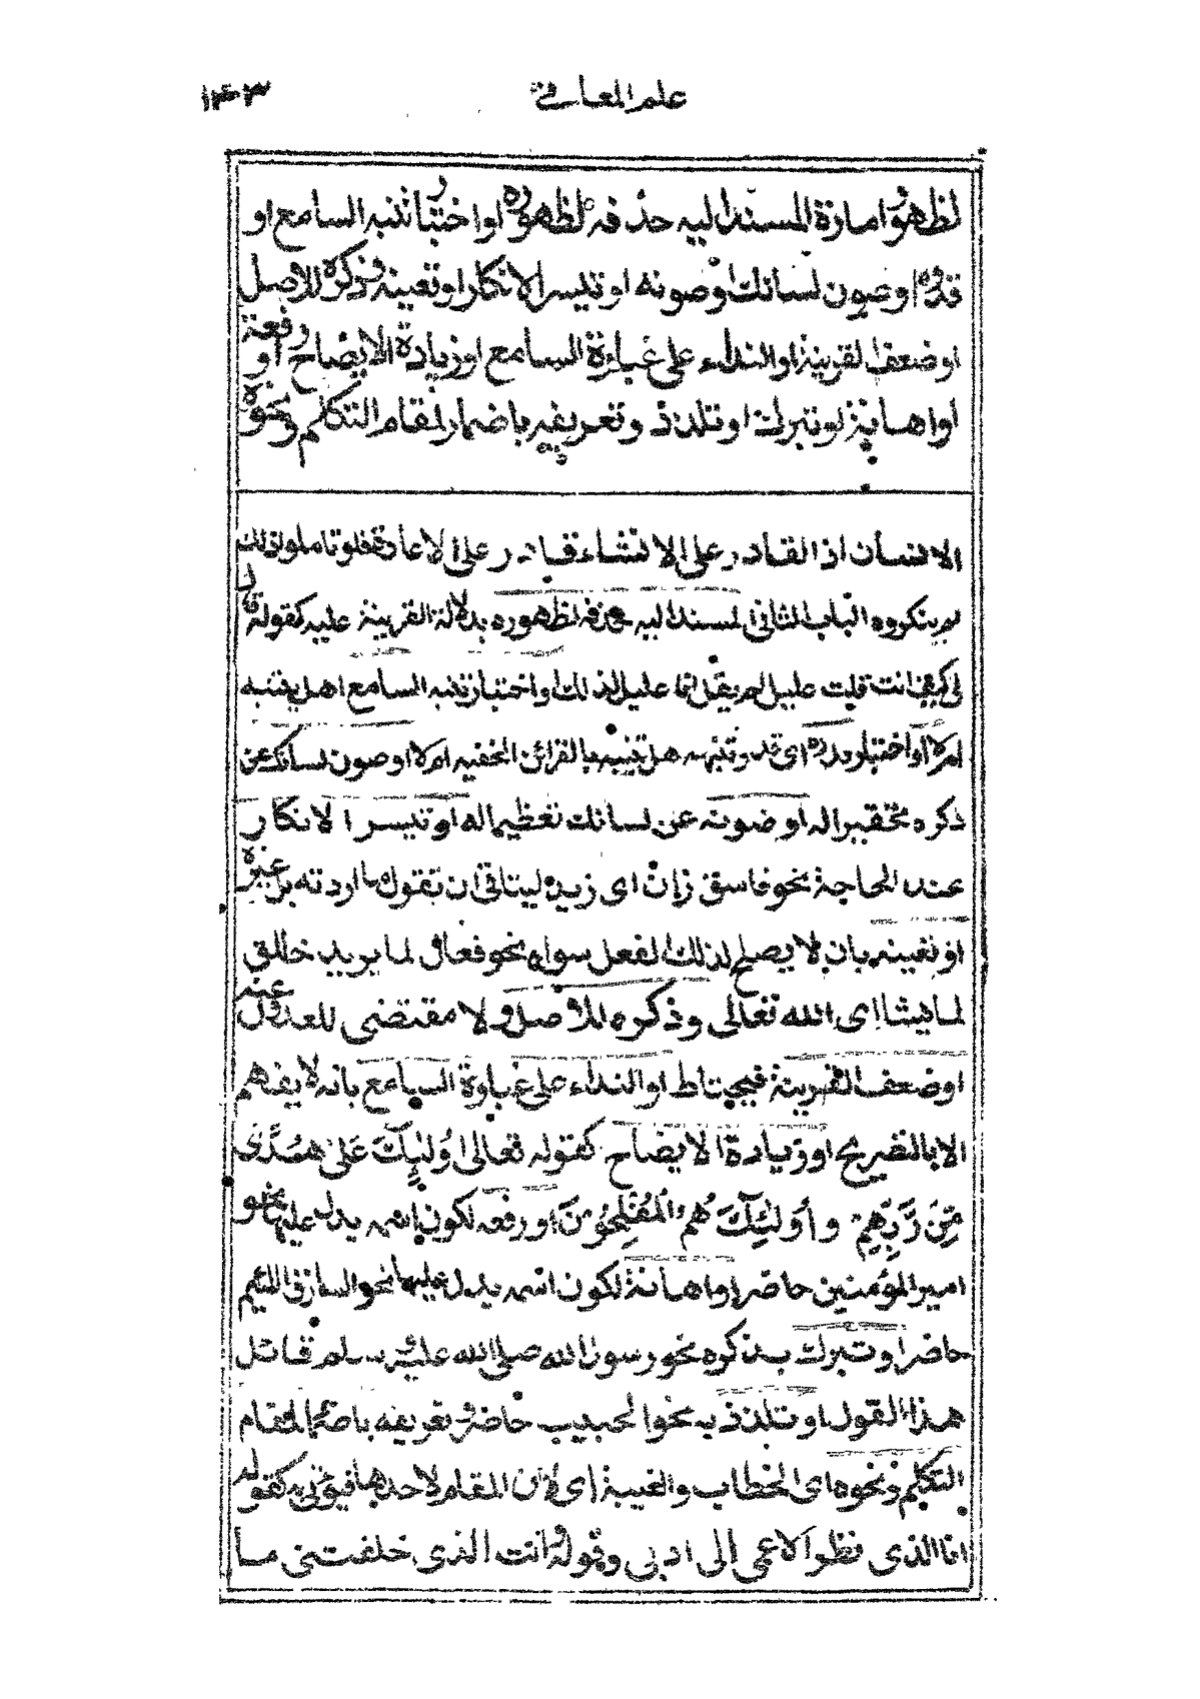 علم المعانى
١٤٣
لظهور امارة المسند اليه حذفه لظهوره او اختبار تنبه السامع او
قدره او صون لسانك او صونه او تيسر الانكار او تعينه وذكره للاصل
او ضعف القرينة او النداء على غباوة السامع او زيادة الايضاح او رفعة
او اهانة او تبرك او تلذذ وتعريفه باضمار لمقام التكلم ونحوه
الانسان اذ القادر على الانشاء قادر على الاعادة فلو تاملوا ذلك
لم ينكروه الباب الثانى المسند اليه حذفه لظهوره بدلالة القرينة عليه كقوله قال
لى كيف انت قلت عليل لم يقل انا عليل لذلك او اختبار تنبه السامع اهل يتنبه
ام لا او اختبار قدره اى قدر تنبهه هل يتنبه بالقرائن الخفيه ام لا او صون لسانك عن
ذكره تحقيرا له او صونه عن لسانك تعظيما له او تيسر الانكار
عند الحاجة نحو فاسق زان اى زيد ليتاتى ان تقول ما اردته بل غيره
او تعينه بان لا يصلح لذلك الفعل سواه نحو فعال لما يريد خالق
لما يشا اى الله تعالى وذكره للاصل ولا مقتضى للعدول عنه
او ضعف القرينة فيحتاط او النداء على غباوة السامع بانه لا يفهم
الا بالتصريح او زيادة الايضاح كقوله تعالى اُولٰئِكَ عَلٰى هُدًى
مِّنْ رَّبِّهِمْ وَأُولٰئِكَ هُمُ الْمُفْلِحُوْنَ او رفعه لكون اسمه يدل عليها نحو
امير المؤمنين حاضر او اهانة لكون اسمه يدل عليها نحو السارق اللئيم
حاضر او تبرك بذكره نحو رسول الله صلى الله عليه وسلم قائل
هذا القول او تلذذ به نحو الحبيب حاضر وتعريفه باضمار لمقام
التكلم ونحوه اى الخطاب والغيبة اى لان المقام لاحدها فيؤتى به كقوله
انا الذى نظر الاعمى الى ادبى وقوله وانت الذى خلفتنى ما